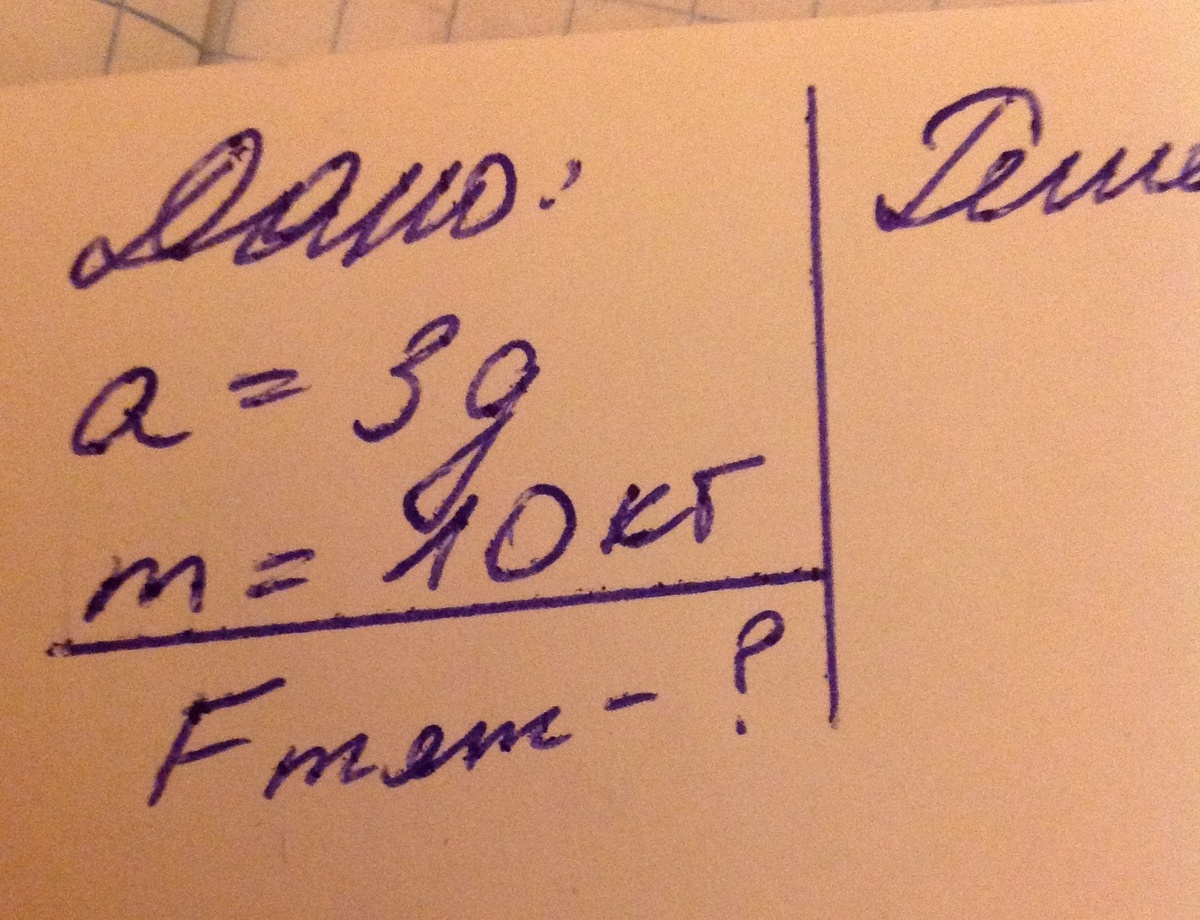 Дано:
a = 3g
m = 10 кг
Fтяж - ?
Реше